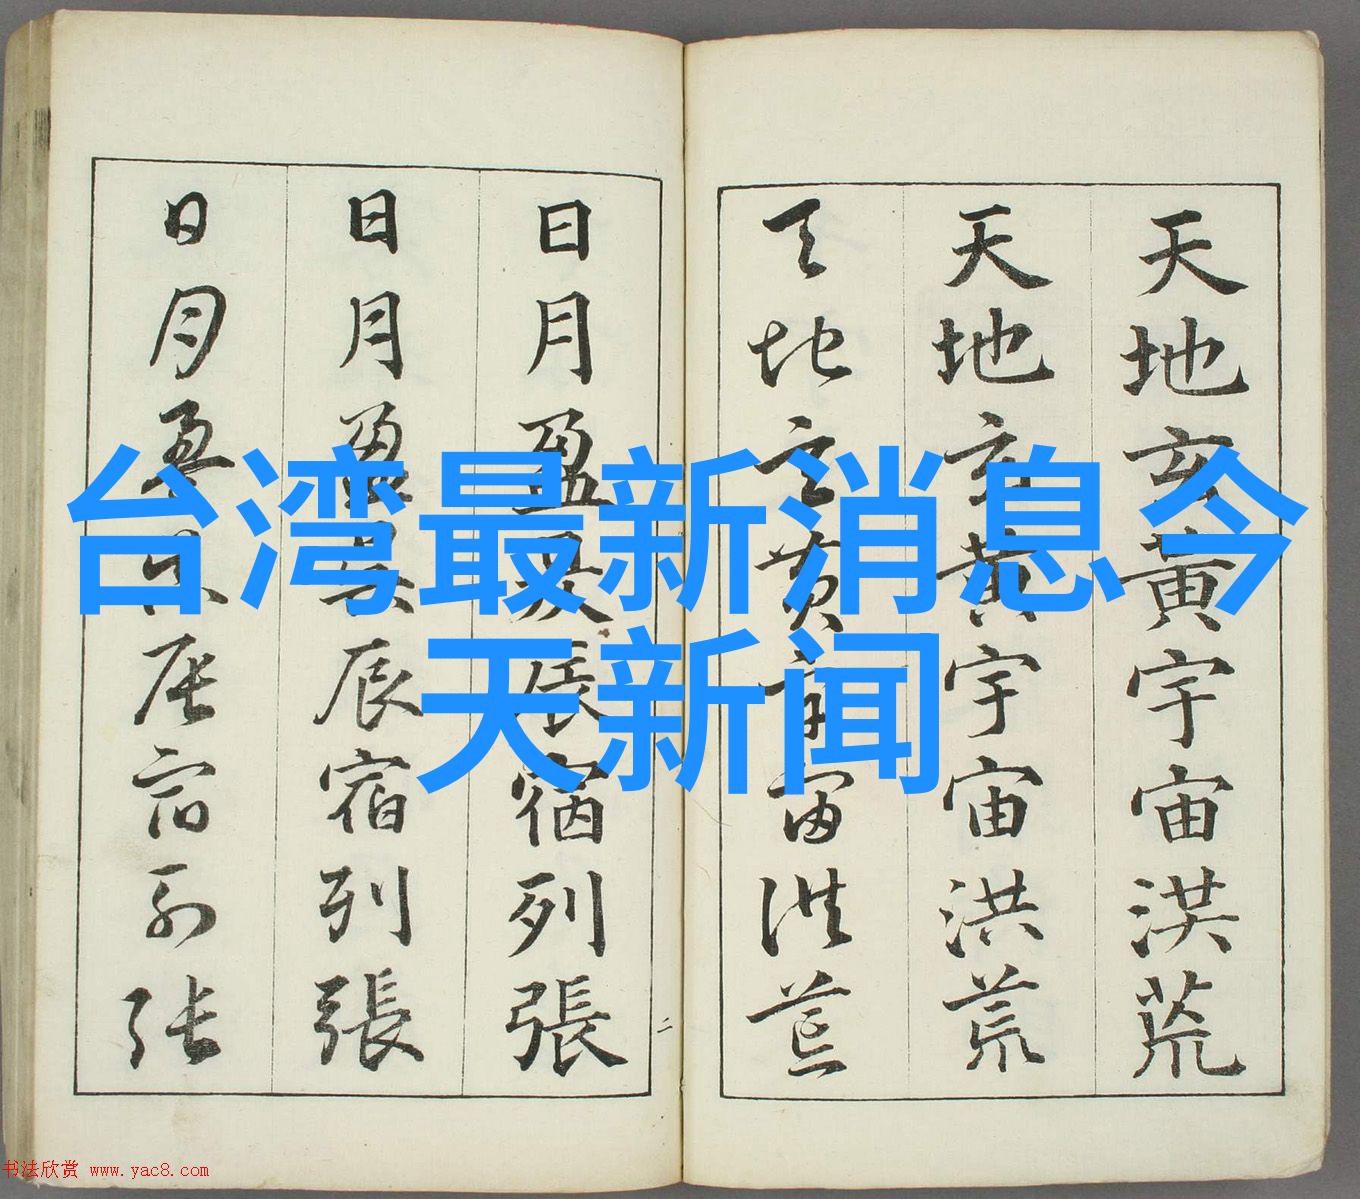 台湾最新消息今
天新闻
天地玄黄宇宙洪荒
天地玄黄宇宙洪荒
天地玄黄宇宙洪荒
二
日月盈昃辰宿列張
日月盈昃辰宿列張
日月盈昃辰宿列張
书法欣赏 www.yac8.com